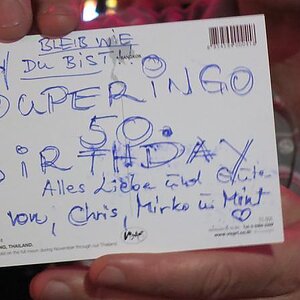 BLEIB WIE
DU BIST!
SUPER INGO
50.
BIRTHDAY
Alles Liebe und Gute
von, Chris, Mirko u Mint
THAILAND.